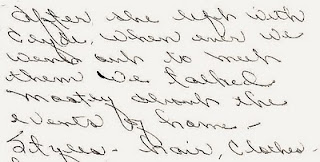 after she left with
Clyde, when ever we
went out to meet
them we talked
mostly about the
events of home -
Styles - hair, clothes -